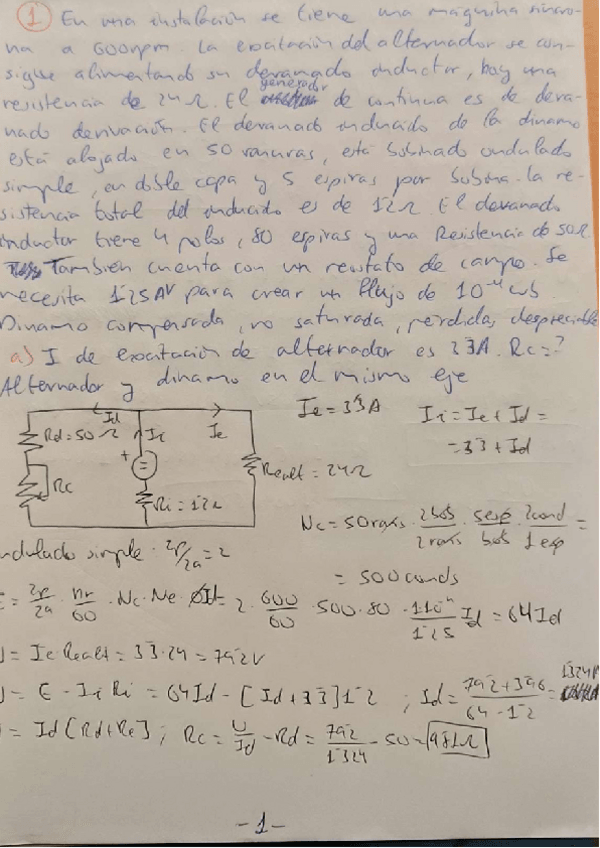 1 En una instalación se tiene una máquina síncro-
na a 600rpm. La excitación del alternador se con-
sigue alimentando su devanado inductor, hay una
generador
resistencia de 24Ω. El de continua es de deva-
nado derivación. El devanado inducido de la dinamo
está alojado en 50 ranuras, está bobinado ondulado
simple, en doble capa y 5 espiras por bobina. La re-
sistencia total del inducido es de 1'2Ω. El devanado
inductor tiene 4 polos, 80 espiras y una Resistencia de 50Ω
También cuenta con un reostato de campo. Se
necesita 1'25AV para crear un flujo de 10⁻⁴ wb
Dinamo compensada, no saturada, pérdidas despreciables
a) I de excitación de alternador es 3'3A. Rc=?
Alternador y dinamo en el mismo eje
Id
Rd=50Ω
Ii
Ie
Rc
+
=
Ri=1'2Ω
Rexalt=24Ω
Ie=3'3A
Ii=Ie+Id=
=3'3+Id
Nc=50ranxs · 2bob/2ranxs · 5esp/bob · 2cond/1esp =
= 500conds
ndulado simple · 2p/2a=2
= 2p/2a · nr/60 · Nc · Ne Id = 2 · 600/60 · 500 · 80 · 1·10⁻⁴/1'25 Id = 64Id
= Ie Rexalt = 3'3·24 = 79'2V
= E - Ii Ri = 64Id - [Id+3'3]1'2 ; Id = 79'2+3'96/64-1'2 = 1'324A
= Id[Rd+Rc]; Rc = U/Id - Rd = 79'2/1'324 - 50 = 9'81Ω
-1-